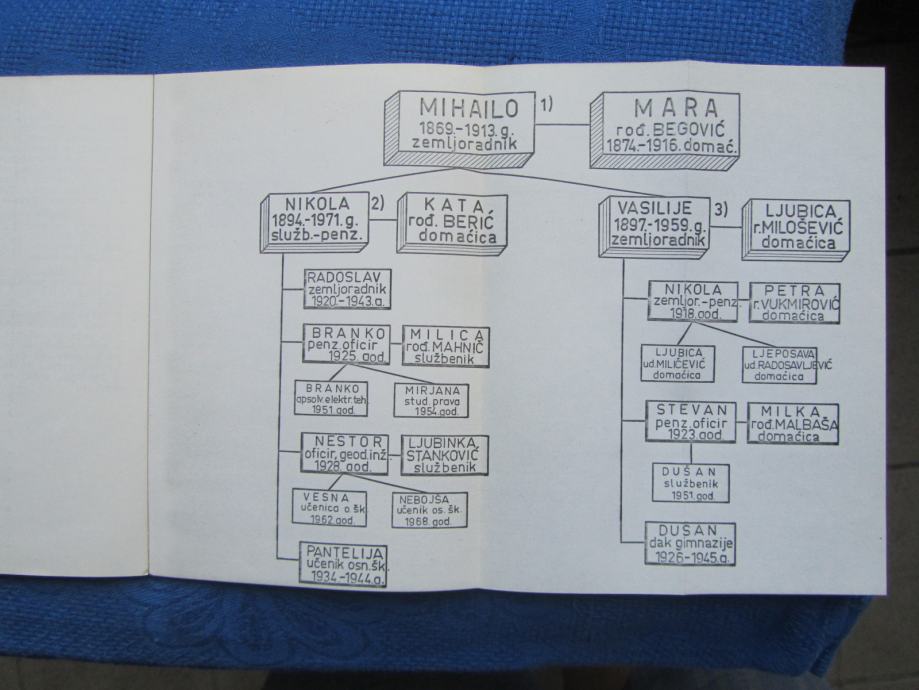 MIHAILO
1869.-1913.g.
zemljoradnik
1)
MARA
rođ. BEGOVIĆ
1874.-1916. domać.
NIKOLA
1894.-1971.g.
služb.-penz.
2)
KATA
rođ. BERIĆ
domaćica
VASILIJE
1897.-1959.g.
zemljoradnik
3)
LJUBICA
r. MILOŠEVIĆ
domaćica
RADOSLAV
zemljoradnik
1920.-1943.g.
BRANKO
penz. oficir
1925. god.
MILICA
rođ. MAHNIČ
službenik
BRANKO
apsolv. elektr. teh.
1951. god.
MIRJANA
stud. prava
1954. god.
NESTOR
oficir, geod. inž.
1928. god.
LJUBINKA
STANKOVIĆ
službenik
VESNA
učenica o. šk.
NEBOJŠA
učenik os. šk.
1968. god.
PANTELIJA
učenik osn. šk.
1934.-1944.g.
NIKOLA
zemljor.-penz.
1918. god.
PETRA
r. VUKMIROVIĆ
domaćica
LJUBICA
ud. MILIČEVIĆ
domaćica
LJEPOSAVA
ud. RADOSAVLJEVIĆ
domaćica
STEVAN
penz. oficir
1923. god.
MILKA
rođ. MALBAŠA
domaćica
DUŠAN
službenik
1951. god.
DUŠAN
đak gimnazije
1926-1945.g.